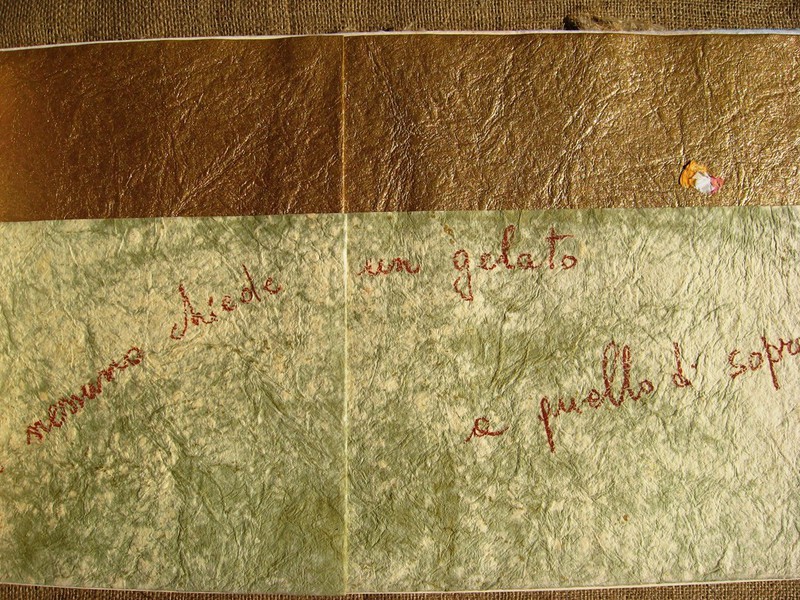 nessuno chiede un gelato
a quello di sopra